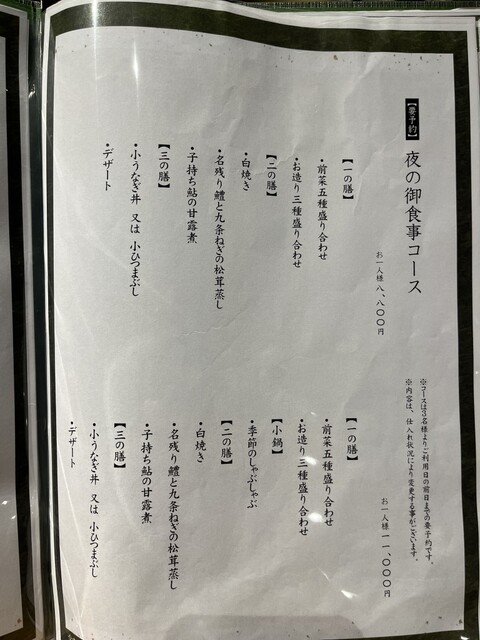 【要予約】
夜の御食事コース
お一人様 八、八〇〇円
【一の膳】
・前菜五種盛り合わせ
・お造り三種盛り合わせ
【二の膳】
・白焼き
・名残り鱧と九条ねぎの松茸蒸し
・子持ち鮎の甘露煮
【三の膳】
・小うなぎ丼 又は 小ひつまぶし
・デザート
※コースは3名様よりご利用日の前日までの要予約です。
※内容は、仕入れ状況により変更する事がございます。
お一人様 一一、〇〇〇円
【一の膳】
・前菜五種盛り合わせ
・お造り三種盛り合わせ
【小鍋】
・季節のしゃぶしゃぶ
【二の膳】
・白焼き
・名残り鱧と九条ねぎの松茸蒸し
・子持ち鮎の甘露煮
【三の膳】
・小うなぎ丼 又は 小ひつまぶし
・デザート